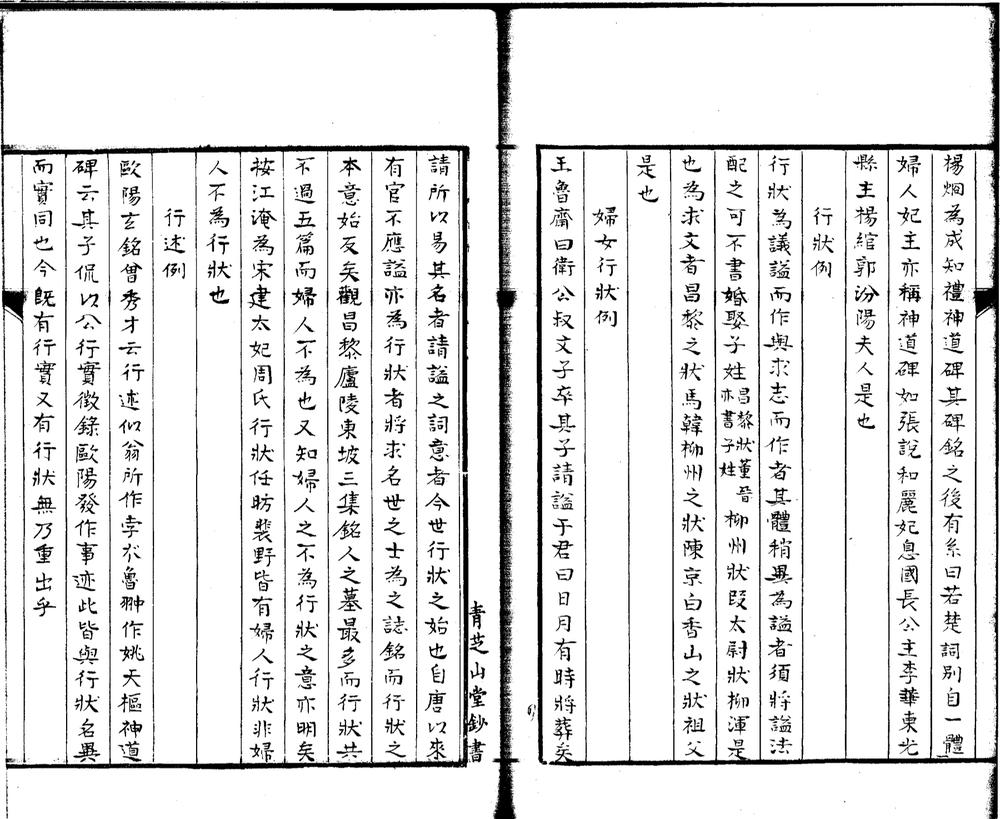 楊烱為成知禮神道碑其碑銘之後有系曰若楚詞別自一體
婦人妃主亦稱神道碑如張說和麗妃息國長公主李華東光
縣主楊綰郭汾陽夫人是也
行狀例
行狀為議謚而作與求志而作者其體稍異為謚者須將謚法
配之可不書婚娶子姓昌黎狀董晉亦書子姓柳州狀叚太尉狀柳渾是
也為求文者昌黎之狀馬韓柳州之狀陳京白香山之狀祖父
是也
婦女行狀例
王魯齋曰衛公叔文子卒其子請謚于君曰日月有時將葬矣
請所以易其名者請謚之詞意者今世行狀之始也自唐以來
有官不應謚亦為行狀者將求名世之士為之誌銘而行狀之
本意始反矣觀昌黎廬陵東坡三集銘人之墓最多而行狀共
不過五篇而婦人不為也又知婦人之不為行狀之意亦明矣
按江淹為宋建太妃周氏行狀任昉裴野皆有婦人行狀非婦
人不為行狀也
行述例
歐陽玄銘曾秀才云行述似翁所作孛朮魯翀作姚天樞神道
碑云其子侃以公行實徵錄歐陽發作事迹此皆與行狀名異
而實同也今既有行實又有行狀無乃重出乎
青芝山堂鈔書